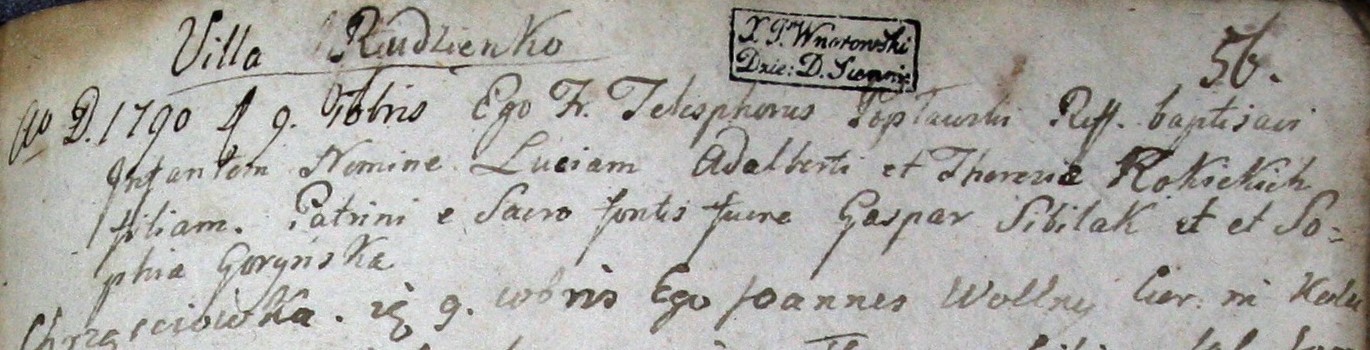 Villa Rudzienko
X. J. Wnorowski
Dzie: D. Siennic:
56.
Ao D. 1790 9. Xbris Ego Fr. Telesphorus Popławski Reff. baptisavi
Infantem Nomine Luciam Adalberti et Theresiæ Rokickich
filiam. Patrini e Sacro fontis fuere Gaspar Sibilak et et So=
phia Goryńska
Chrząsciowka. 9. Ego Joannes Wollny